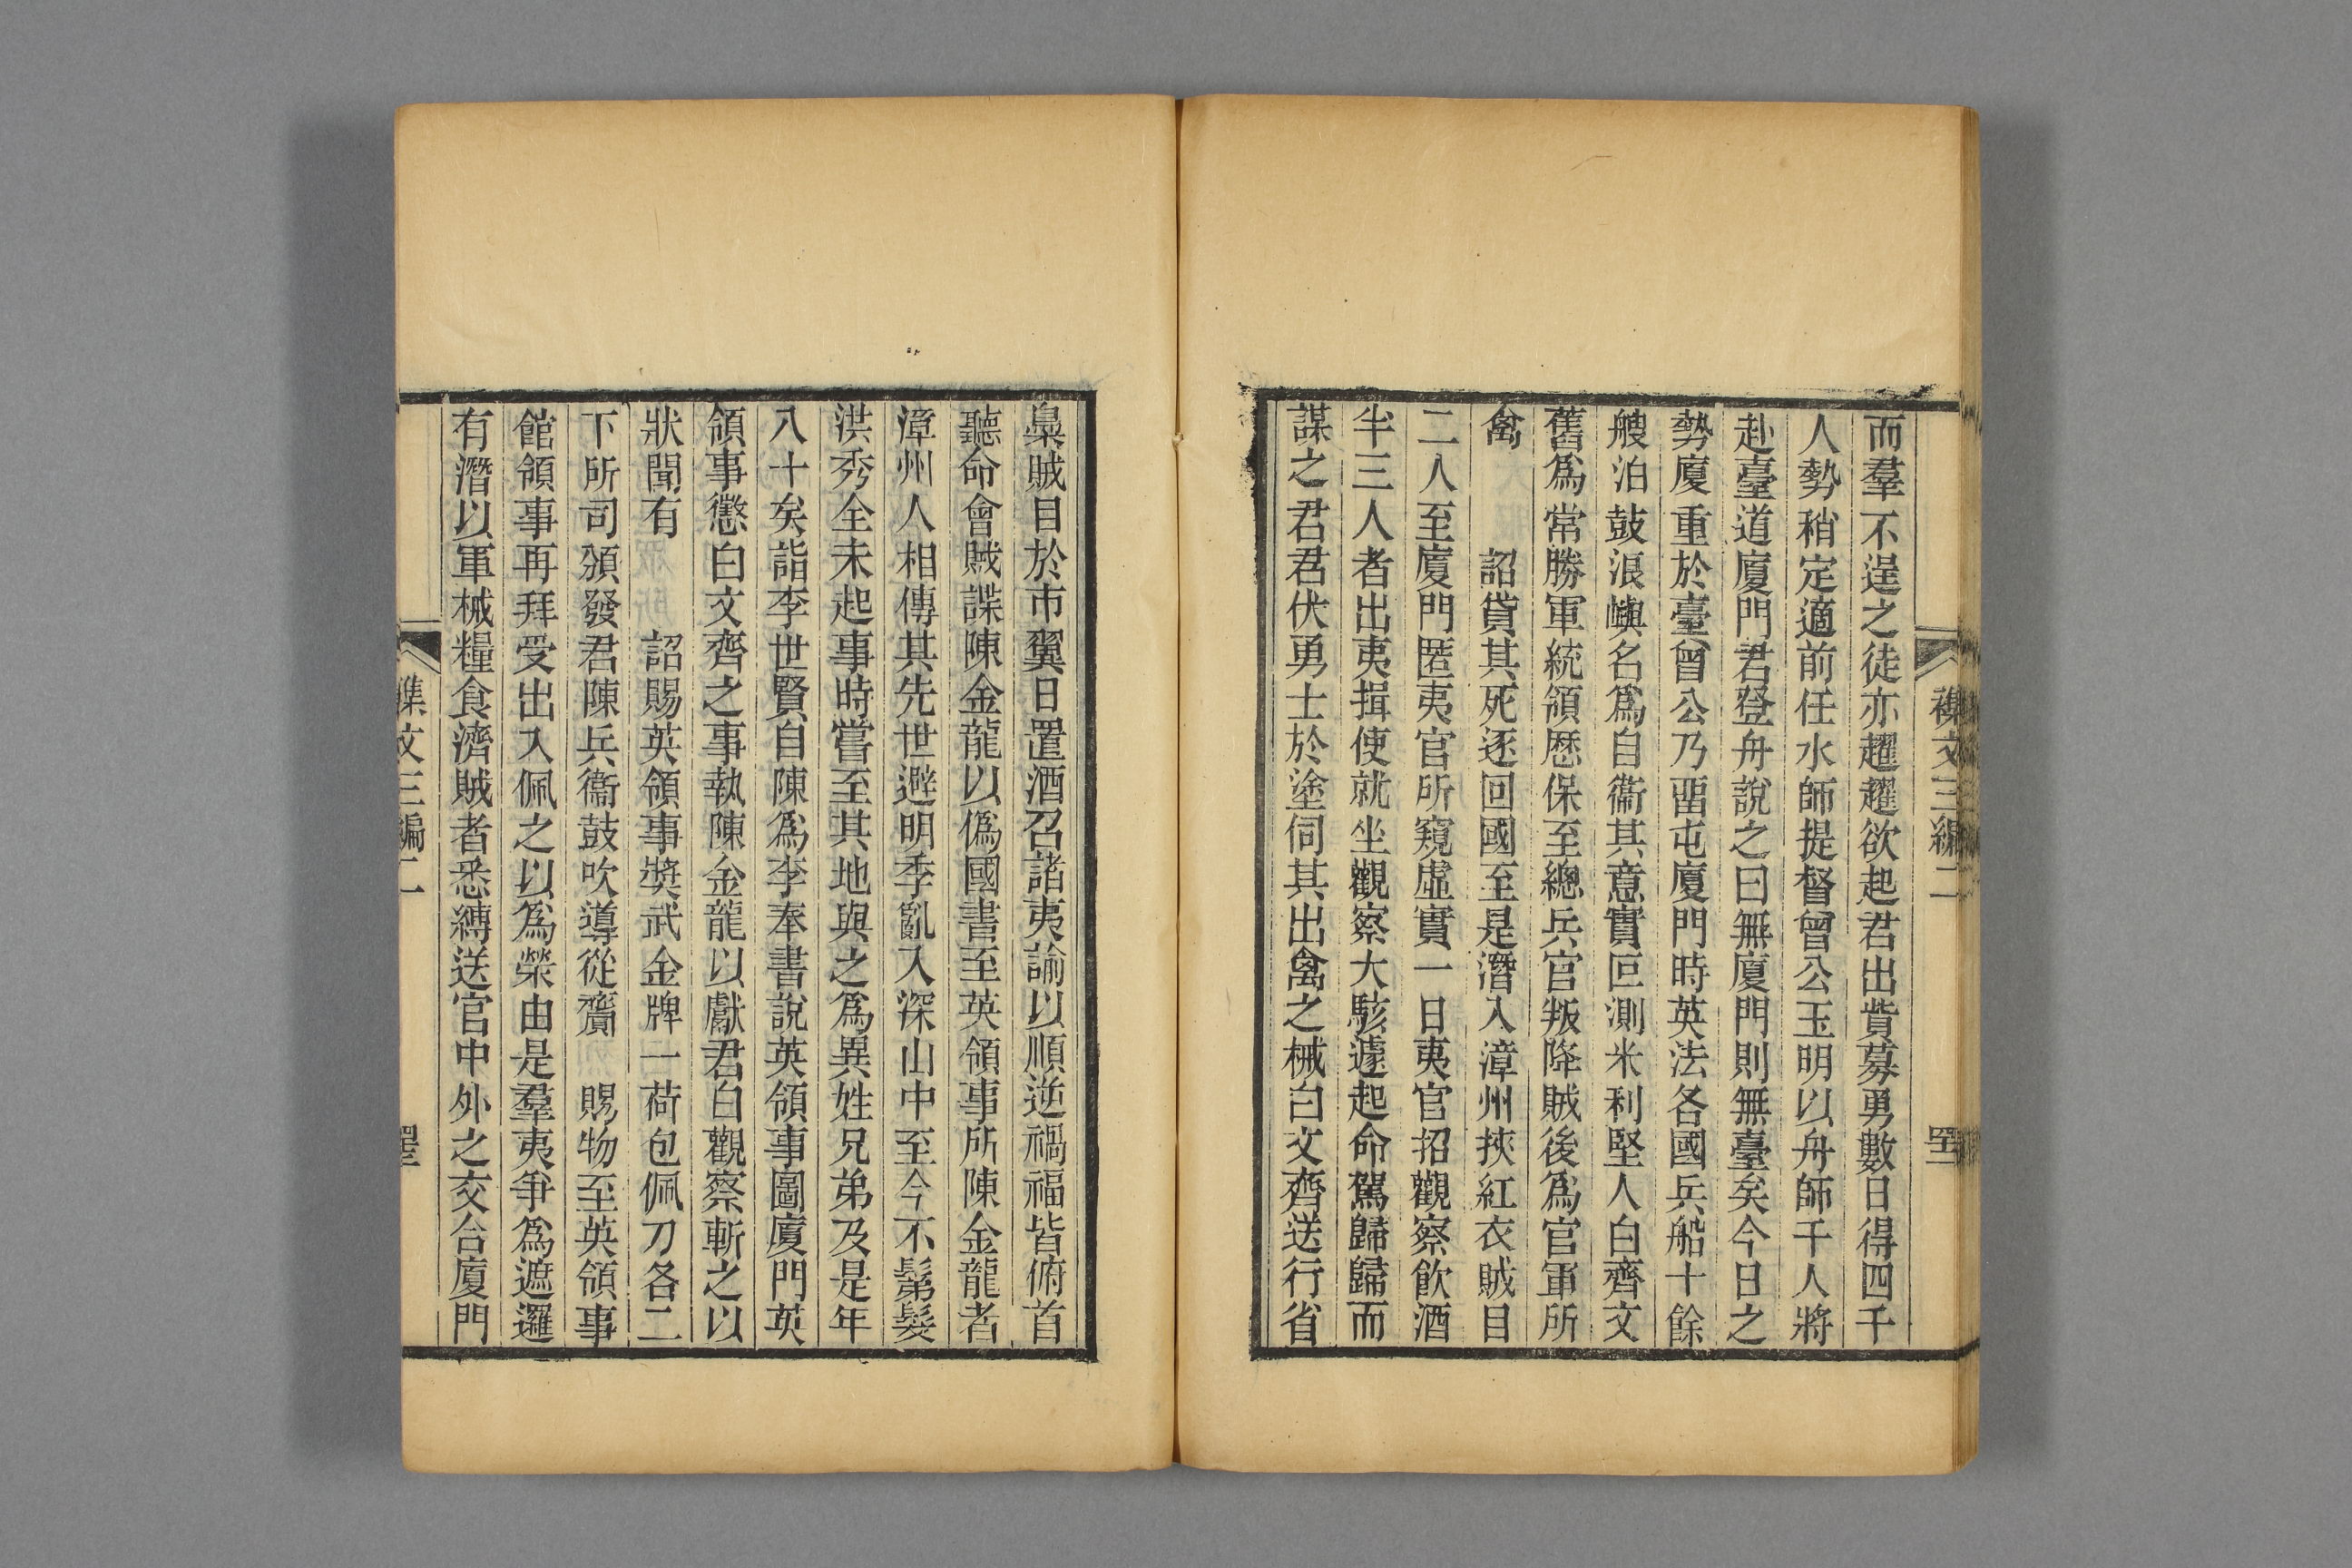 襍文三編二
而羣不逞之徒亦趯趯欲起君出貲募勇數日得四千
人勢稍定適前任水師提督曾公玉明以舟師千人將
赴臺道廈門君登舟說之曰無廈門則無臺矣今日之
勢廈重於臺曾公乃畱屯廈門時英法各國兵船十餘
艘泊鼓浪嶼名爲自衞其意實叵測米利堅人白齊文
舊爲常勝軍統領歷保至總兵官叛降賊後爲官軍所
禽　　詔貸其死逐回國至是潛入漳州挾紅衣賊目
二人至廈門匿夷官所窺虛實一日夷官招觀察飮酒
半三人者出夷揖使就坐觀察大駭遽起命駕歸歸而
謀之君君伏勇士於塗伺其出禽之械白文齊送行省
梟賊目於市翼日置酒召諸夷諭以順逆禍福皆俯首
聽命會賊諜陳金龍以僞國書至英領事所陳金龍者
漳州人相傳其先世避明季亂入深山中至今不鬀髮
洪秀全未起事時嘗至其地與之爲異姓兄弟及是年
八十矣詣李世賢自陳爲李奉書說英領事圖廈門英
領事懲白文齊之事執陳金龍以獻君白觀察斬之以
狀聞有　　詔賜英領事奬武金牌一荷包佩刀各二
下所司頒發君陳兵衞鼓吹導從齎　賜物至英領事
館領事再拜受出入佩之以爲榮由是羣夷爭爲遮邏
有潛以軍械糧食濟賊者悉縛送官中外之交合廈門
文三編二